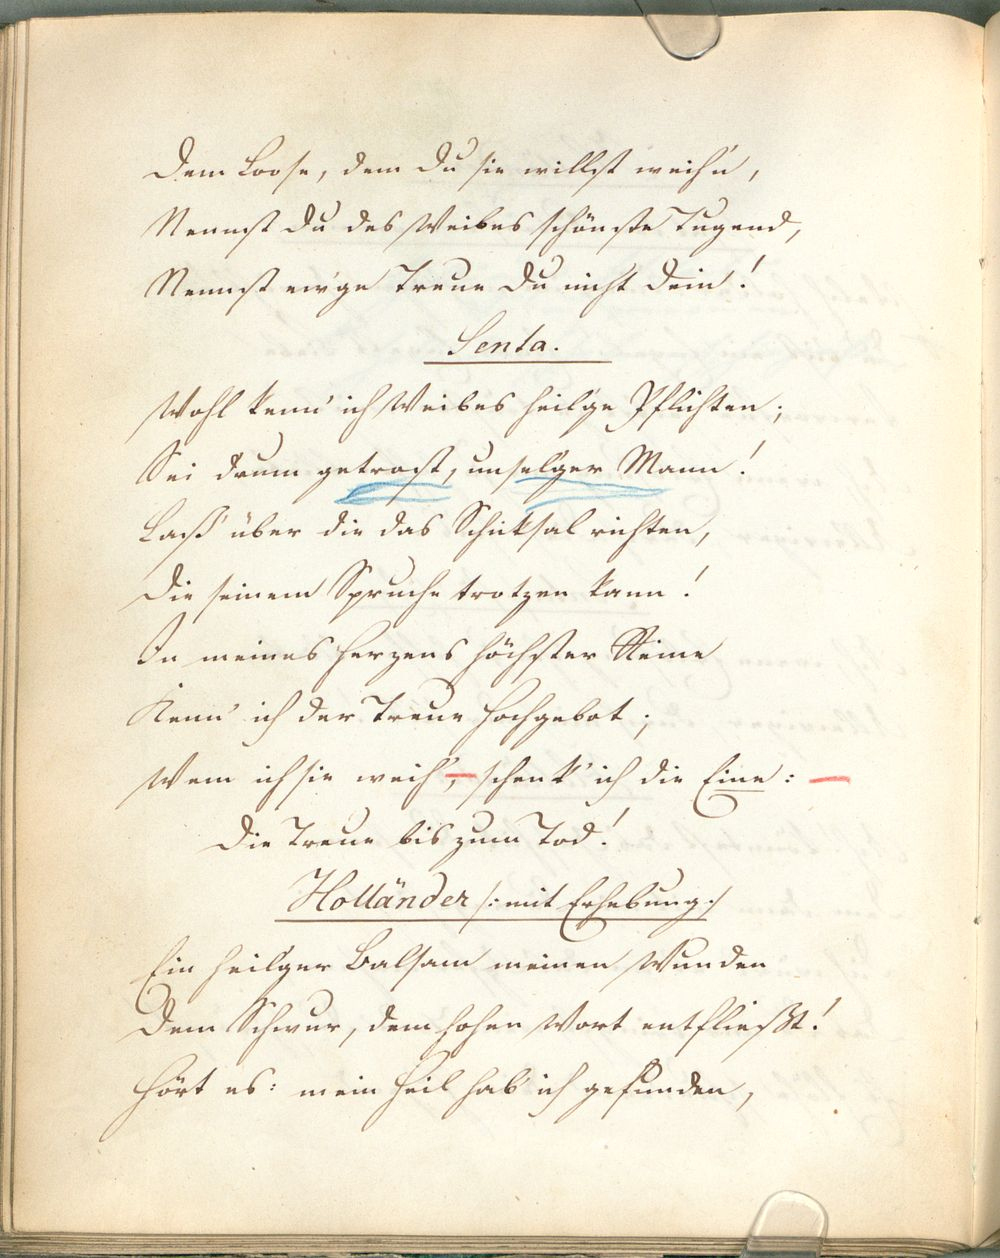 Dem Loose, dem Du sie willst weih'n,
Nennst Du des Weibes schönste Tugend,
Nennst ew'ge Treue Du nicht Dein!
Senta.
Wohl kenn' ich Weibes heil'ge Pflichten;
Sei drum getrost, unsel'ger Mann!
Laß' über die das Schicksal richten,
Die seinem Spruche trotzen kann!
In meines Herzens höchster Reine
Kenn' ich der Treue Hochgebot;
Wem ich sie weih', schenk' ich die Eine:
Die Treue bis zum Tod!
Holländer /: mit Erhebung :/
Ein heil'ger Balsam meinen Wunden
Dem Schwur, dem hohen Wort entfließt!
Hört es: mein Heil hab' ich gefunden,